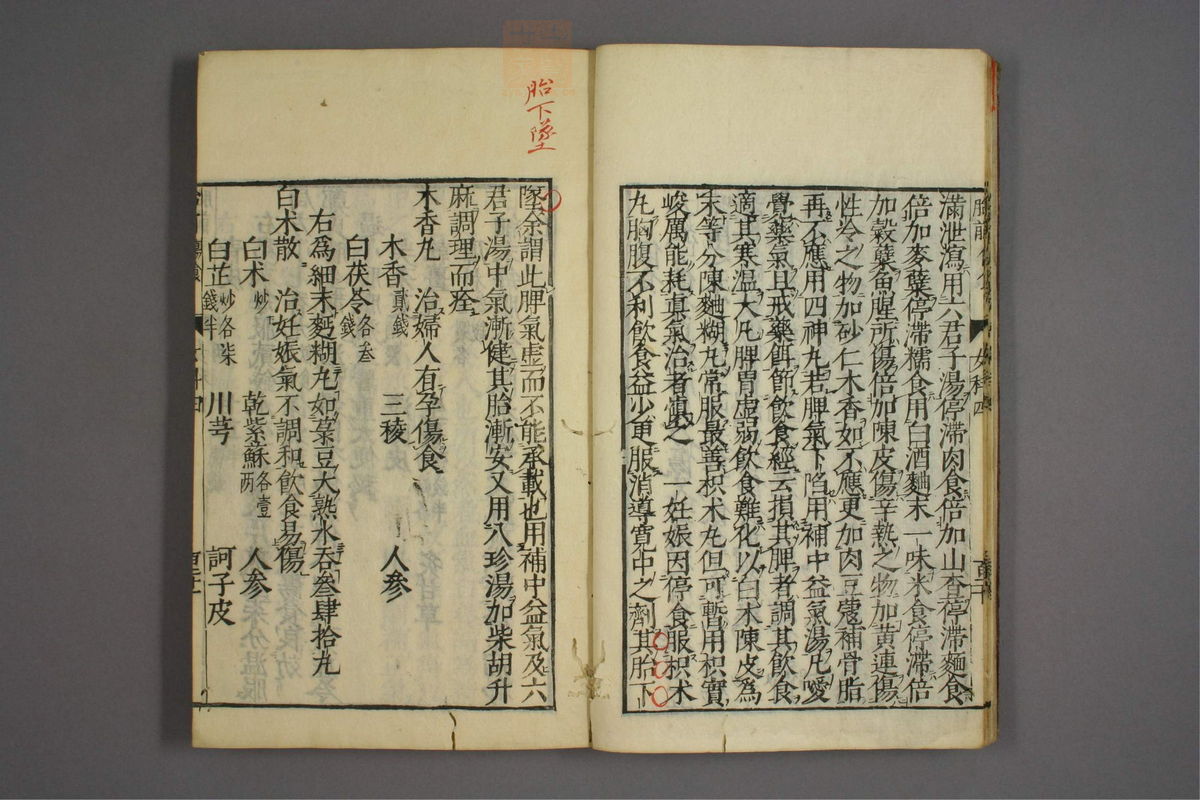 滿泄瀉用六君子湯停滯肉食倍加山查停滯麵食
倍加麥蘗停滯糯食用白酒麯末一味米食停滯倍
加穀蘗魚腥所傷倍加陳皮傷辛熱之物加黃連傷
性冷之物加砂仁木香如不應更加肉豆蔻補骨脂
再不應用四神丸若脾氣下陷用補中益氣湯凡嗳
覺藥氣且戒藥餌節飲食經云損其脾者調其飲食
適其寒温大凡脾胃虛弱飲食難化以白术陳皮為
末等分陳麯糊丸常服最善枳术丸但可暫用枳實
峻厲能耗真氣治者慎之一妊娠因停食服枳术
丸胸腹不利飲食益少更服消導寬中之劑其胎下
胎下墜
墜余謂此脾氣虛而不能承載也用補中益氣及六
君子湯中氣漸健其胎漸安又用八珍湯加柴胡升
麻調理而痊
木香丸 治婦人有孕傷食
木香貳錢 三稜 人參
白茯苓各叁錢
右爲細末麪糊丸如菉豆大熟水吞叁肆拾丸
白术散 治妊娠氣不調和飲食易傷
白术炒 乾紫蘇各壹兩 人參
白芷炒各柒錢半 川芎 訶子皮